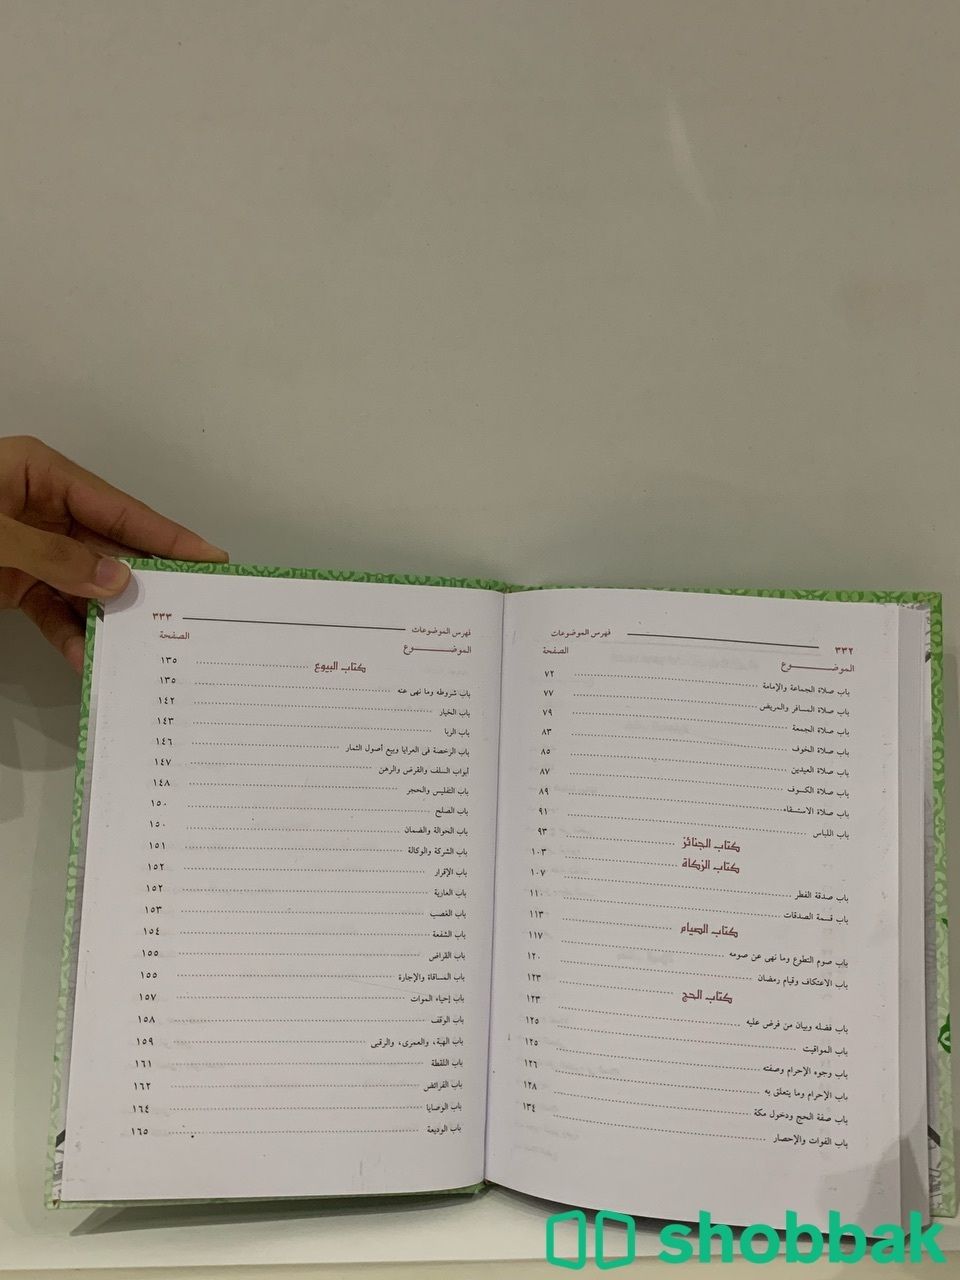 ٣٣٢ فهرس الموضوعات
الموضـــــــوع الصفحة
باب صلاة الجماعة والإمامة ٧٢
باب صلاة المسافر والمريض ٧٧
باب صلاة الجمعة ٧٩
باب صلاة الخوف ٨٣
باب صلاة العيدين ٨٥
باب صلاة الكسوف ٨٧
باب صلاة الاستسقاء ٨٩
باب اللباس ٩١
كتاب الجنائز ٩٣
كتاب الزكاة ١٠٣
باب صدقة الفطر ١٠٧
باب قسمة الصدقات ١١٠
كتاب الصيام ١١٣
باب صوم التطوع وما نهى عن صومه ١١٧
باب الاعتكاف وقيام رمضان ١٢٠
كتاب الحج ١٢٣
باب فضله وبيان من فرض عليه ١٢٣
باب المواقيت ١٢٥
باب وجوه الإحرام وصفته ١٢٥
باب الإحرام وما يتعلق به ١٢٦
باب صفة الحج ودخول مكة ١٢٨
باب الفوات والإحصار ١٣٤
فهرس الموضوعات ٣٣٣
الموضـــــــوع الصفحة
كتاب البيوع ١٣٥
باب شروطه وما نهى عنه ١٣٥
باب الخيار ١٤٢
باب الربا ١٤٣
باب الرخصة فى العرايا وبيع أصول الثمار ١٤٦
أبواب السلف والقرض والرهن ١٤٧
باب التفليس والحجر ١٤٨
باب الصلح ١٥٠
باب الحوالة والضمان ١٥٠
باب الشركة والوكالة ١٥١
باب الإقرار ١٥٢
باب العارية ١٥٢
باب الغصب ١٥٣
باب الشفعة ١٥٤
باب القراض ١٥٥
باب المساقاة والإجارة ١٥٥
باب إحياء الموات ١٥٧
باب الوقف ١٥٨
باب الهبة، والعمرى، والرقبى ١٥٩
باب اللقطة ١٦١
باب الفرائض ١٦٢
باب الوصايا ١٦٤
باب الوديعة ١٦٥
shobbak